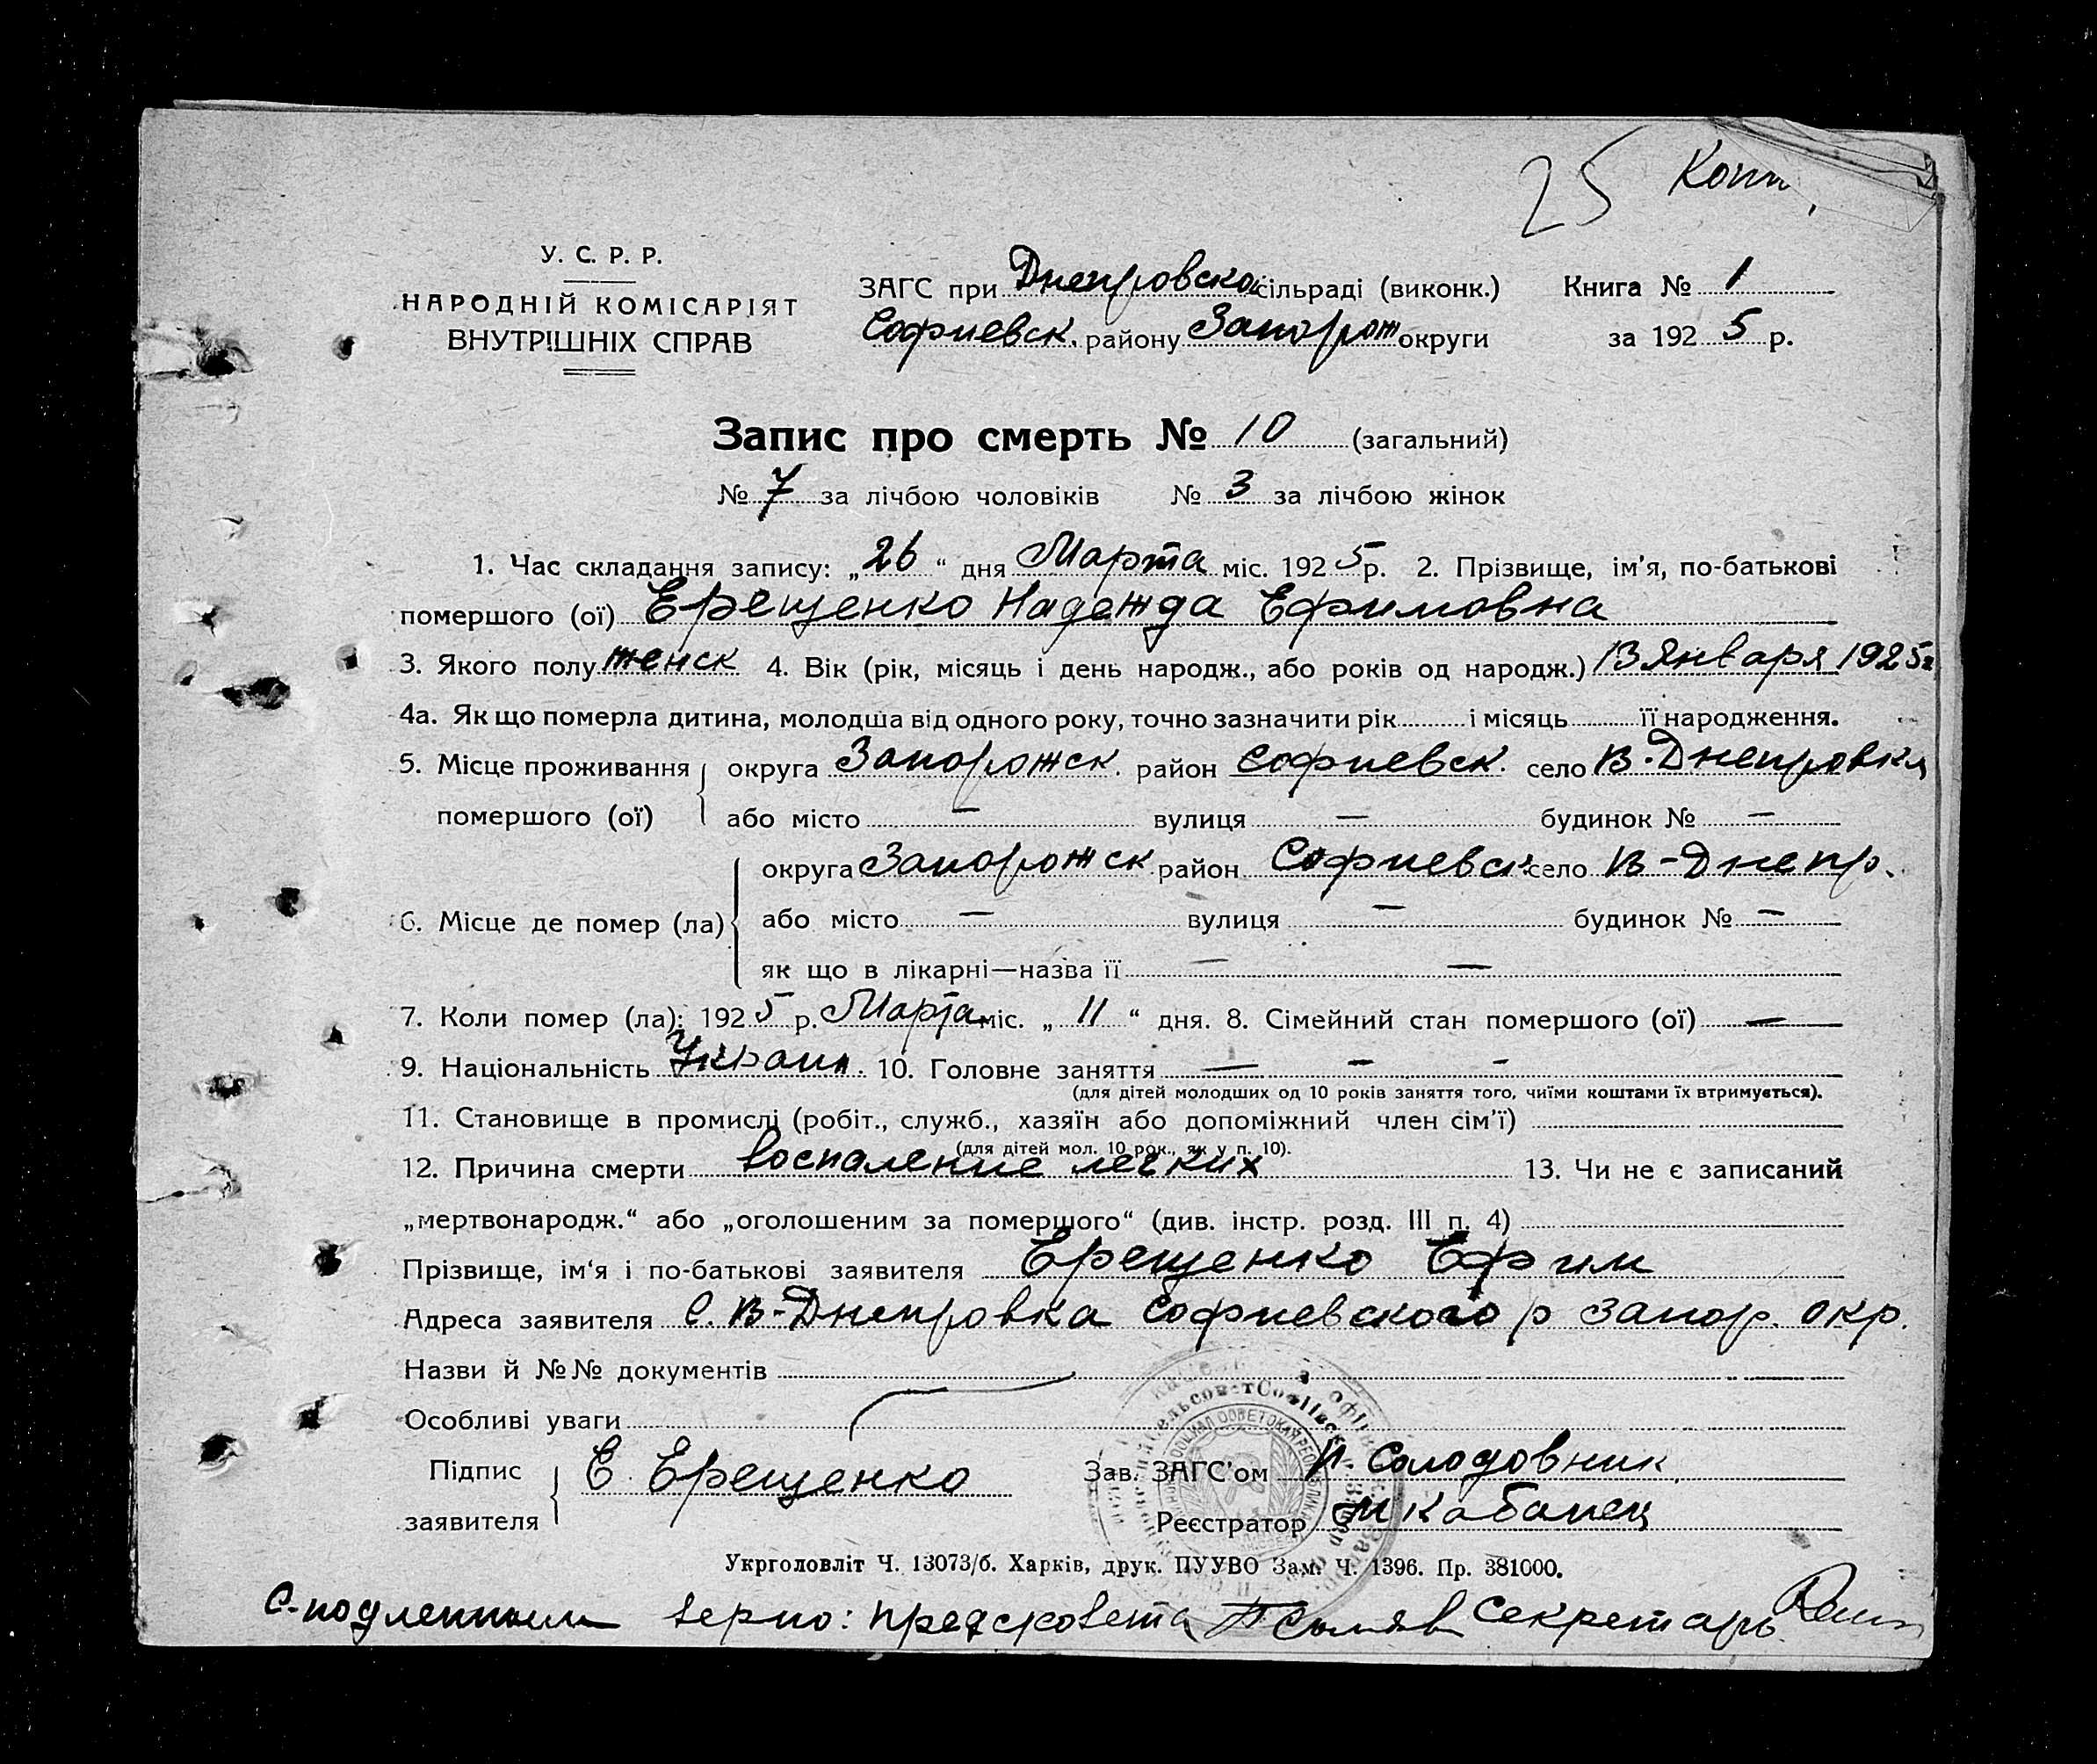 25 Коп.
У. С. Р. Р.
НАРОДНІЙ КОМІСАРІЯТ
ВНУТРІШНІХ СПРАВ
ЗАГС при Днепровской сільраді (виконк.)
Софиевск. району Запорож округи
Книга № 1
за 1925 р.
Запис про смерть № 10 (загальний)
№ 7 за лічбою чоловіків № 3 за лічбою жінок
1. Час складання запису: „26“ дня Марта міс. 1925 р. 2. Прізвище, ім'я, по-батькові
помершого (ої) Ерещенко Надежда Ефимовна
3. Якого полу женск 4. Вік (рік, місяць і день народж., або років од народж.) 13 Января 1925 г
4а. Як що померла дитина, молодша від одного року, точно зазначити рік і місяць її народження.
5. Місце проживання округа Запорожск. район Софиевск. село В.-Днепровка
помершого (ої) або місто — вулиця — будинок № —
округа Запорожск район Софиевск село В-Днепр.
6. Місце де помер (ла) або місто — вулиця — будинок № —
як що в лікарні—назва її — —
7. Коли помер (ла): 1925 р. Марта міс. „11“ дня. 8. Сімейний стан помершого (ої) —
9. Національність Украин. 10. Головне заняття — - -
(для дітей молодших од 10 років заняття того, чиїми коштами їх втримується).
11. Становище в промислі (робіт., служб., хазяїн або допоміжний член сім'ї)
(для дітей мол. 10 рок., як у п. 10).
12. Причина смерти воспаление легких 13. Чи не є записаний
„мертвонародж.“ або „оголошеним за помершого“ (див. інстр. розд. III п. 4)
Прізвище, ім'я і по-батькові заявителя Ерещенко Ефим
Адреса заявителя С. В-Днепровка Софиевского р Запор. окр.
Назви й №№ документів
Особливі уваги
Підпис заявителя Е. Ерещенко
Зав. ЗАГС'ом П. Солодовник
Реєстратор М Кабанец
Укрголовліт Ч. 13073/б. Харків, друк. ПУУВО Зам. Ч. 1396. Пр. 381000.
С-подленным верно: предсковета Секретарь